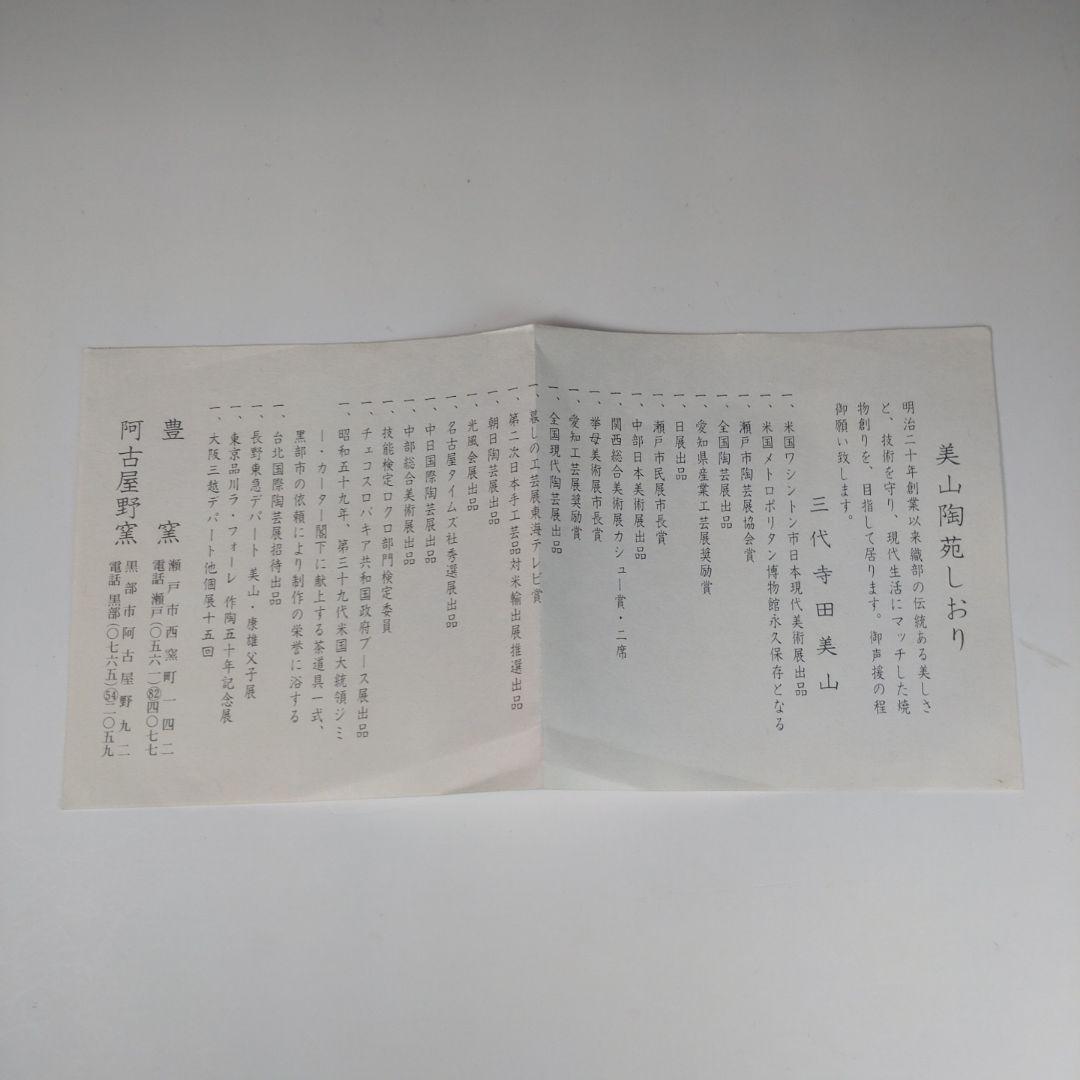 美山陶苑しおり
明治二十年創業以来織部の伝統ある美しさ
と、技術を守り、現代生活にマッチした焼
物創りを、目指して居ります。御声援の程
御願い致します。
三代 寺田美山
一、米国ワシントン市日本現代美術展出品
一、米国メトロポリタン博物館永久保存となる
一、瀬戸市陶芸展協会賞
一、全国陶芸展出品
一、愛知県産業工芸展奨励賞
一、日展出品
一、瀬戸市民展市長賞
一、中部日本美術展出品
一、関西総合美術展カシュー賞・二席
一、挙母美術展市長賞
一、愛知工芸展奨励賞
一、全国現代陶芸展出品
一、暮しの工芸展東海テレビ賞
一、第二次日本手工芸品対米輸出展推選出品
一、朝日陶芸展出品
一、光風会展出品
一、名古屋タイムズ社秀選展出品
一、中日国際陶芸展出品
一、中部総合美術展出品
一、技能検定ロクロ部門検定委員
一、チェコスロバキア共和国政府ブース展出品
一、昭和五十九年、第三十九代米国大統領ジミ
ー・カーター閣下に献上する茶道具一式、
黒部市の依頼により制作の栄誉に浴する
一、台北国際陶芸展招待出品
一、長野東急デパート 美山・康雄父子展
一、東京品川ラ・フォーレ 作陶五十年記念展
一、大阪三越デパート他個展十五回
豊窯 瀬戸市西窯町一四二
電話 瀬戸(〇五六一)82四〇七七
阿古屋野窯 黒部市阿古屋野九二
電話 黒部(〇七六五)54二〇五九